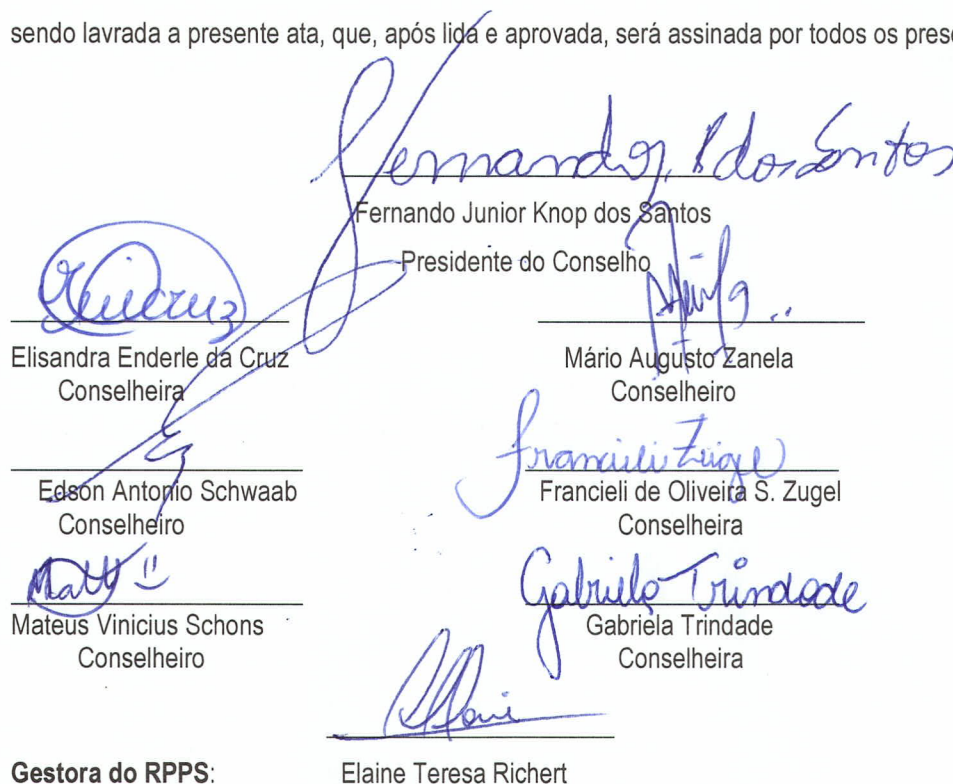 sendo lavrada a presente ata, que, após lida e aprovada, será assinada por todos os prese
Fernando J. K dos Santos
Fernando Junior Knop dos Santos
Presidente do Conselho
Elisandra Enderle da Cruz
Conselheira
Mário Augusto Zanela
Conselheiro
Edson Antonio Schwaab
Conselheiro
Francieli Zugel
Francieli de Oliveira S. Zugel
Conselheira
Mateus Vinicius Schons
Conselheiro
Gabriela Trindade
Gabriela Trindade
Conselheira
Gestora do RPPS: Elaine Teresa Richert